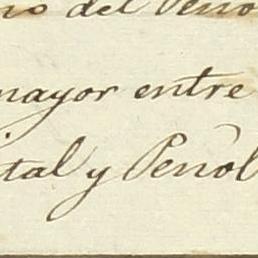 no del Peño
mayor entre
ital y Peñol